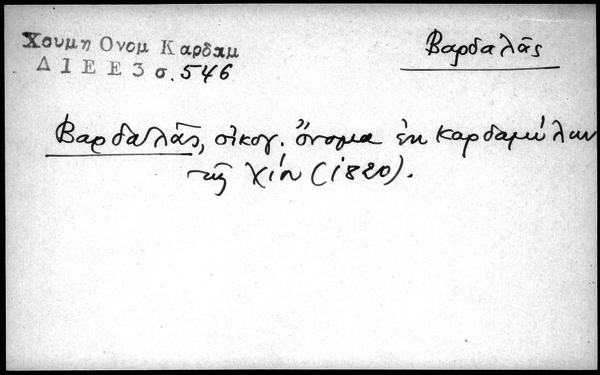 Χουμη Ονομ Καρδαμ
Δ Ι Ε Ε 3 σ. 546
Βαρδαλᾶς
Βαρδαλᾶς, οἰκογ. ὄνομα ἐκ Καρδαμύλων
τῆς Χίου (1820).